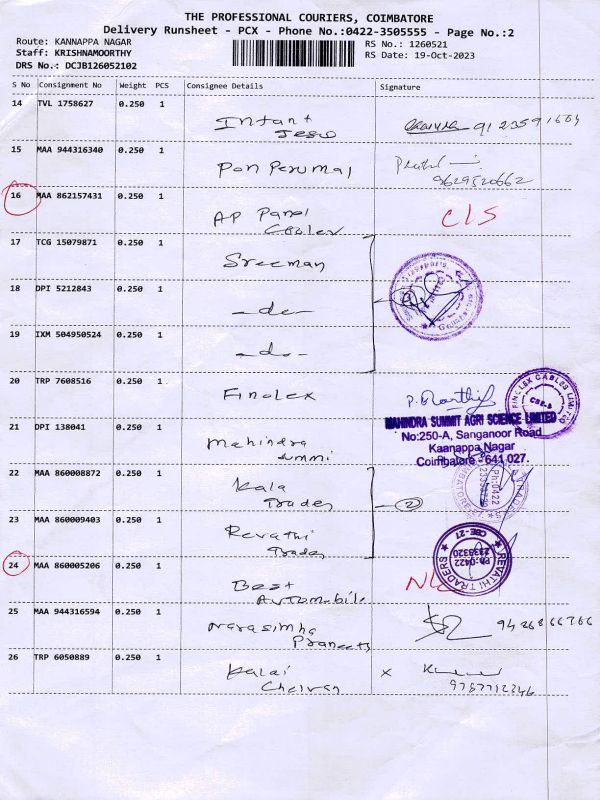 THE PROFESSIONAL COURIERS, COIMBATORE
Delivery Runsheet - PCX - Phone No.:0422-3505555 - Page No.:2
Route: KANNAPPA NAGAR
RS No.: 1260521
Staff: KRISHNAMOORTHY
RS Date: 19-Oct-2023
DRS No.: DCJB126052102
S No Consignment No Weight PCS Consignee Details Signature
14 TVL 1758627 0.250 1
Infant
Jesu
15 MAA 944316340 0.250 1
Pon Perumal
9629520662
16 MAA 862157431 0.250 1
AP Panel
Cooler
C/S
17 TCG 15079871 0.250 1
Sreeman
18 DPI 5212843 0.250 1
-do-
19 IXM 504950524 0.250 1
-do-
20 TRP 7608516 0.250 1
Finolex
FINOLEX CABLES LIMITED
CBE-8
21 DPI 138041 0.250 1
Mahindra
Summi
MAHINDRA SUMMIT AGRI SCIENCE LIMITED
No:250-A, Sanganoor Road
Kaanappa Nagar
Coimbatore - 641 027.
22 MAA 860008872 0.250 1
Kala
Trades
2
23 MAA 860009403 0.250 1
Revathi
Trades
REVATHI TRADERS
CBE-27
PH:0422
2333320
24 MAA 860005206 0.250 1
Best
Automobile
25 MAA 944316594 0.250 1
Narasimha
26 TRP 6050889 0.250 1
Kalai
Chelvan
x